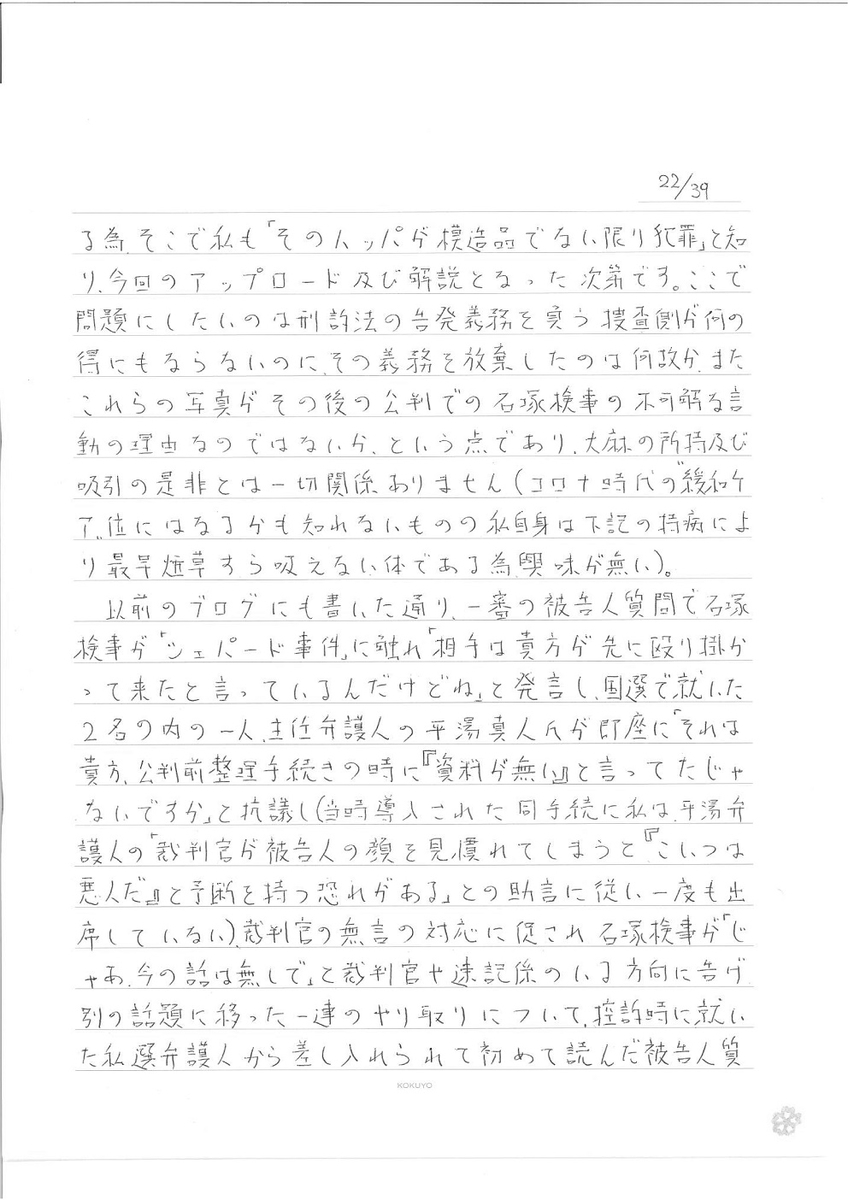 22/39
る為、そこで私も「そのハッパが模造品でない限り犯罪」と知
り、今回のアップロード及び解説となった次第です。ここで
問題にしたいのは刑訴法の告発義務を負う捜査側が何の
得にもならないのに、その義務を放棄したのは何故か、また
これらの写真がその後の公判での石塚検事の不可解な言
動の理由なのではないか、という点であり、大麻の所持及び
吸引の是非とは一切関係ありません(コロナ時代の"緩和ケ
ア"位にはなるかも知れないものの私自身は下記の持病によ
り最早煙草すら吸えない体である為、興味が無い)。
以前のブログにも書いた通り、一審の被告人質問で石塚
検事が「シェパード事件」に触れ「相手は貴方が先に殴り掛か
って来たと言っているんだけどね」と発言し、国選で就いた
2名の内の一人、主任弁護人の平湯真人氏が即座に「それは
貴方、公判前整理手続きの時に『資料が無い』と言ってたじゃ
ないですか」と抗議し(当時導入された同手続に私は、平湯弁
護人の「裁判官が被告人の顔を見慣れてしまうと『こいつは
悪人だ』と予断を持つ恐れがある」との助言に従い一度も出
席していない)、裁判官の無言の対応に促され石塚検事が「じ
ゃあ、今の話は無しで」と裁判官や速記係のいる方向に告げ
別の話題に移った一連のやり取りについて、控訴時に就い
た私選弁護人から差し入れられて初めて読んだ被告人質
KOKUYO